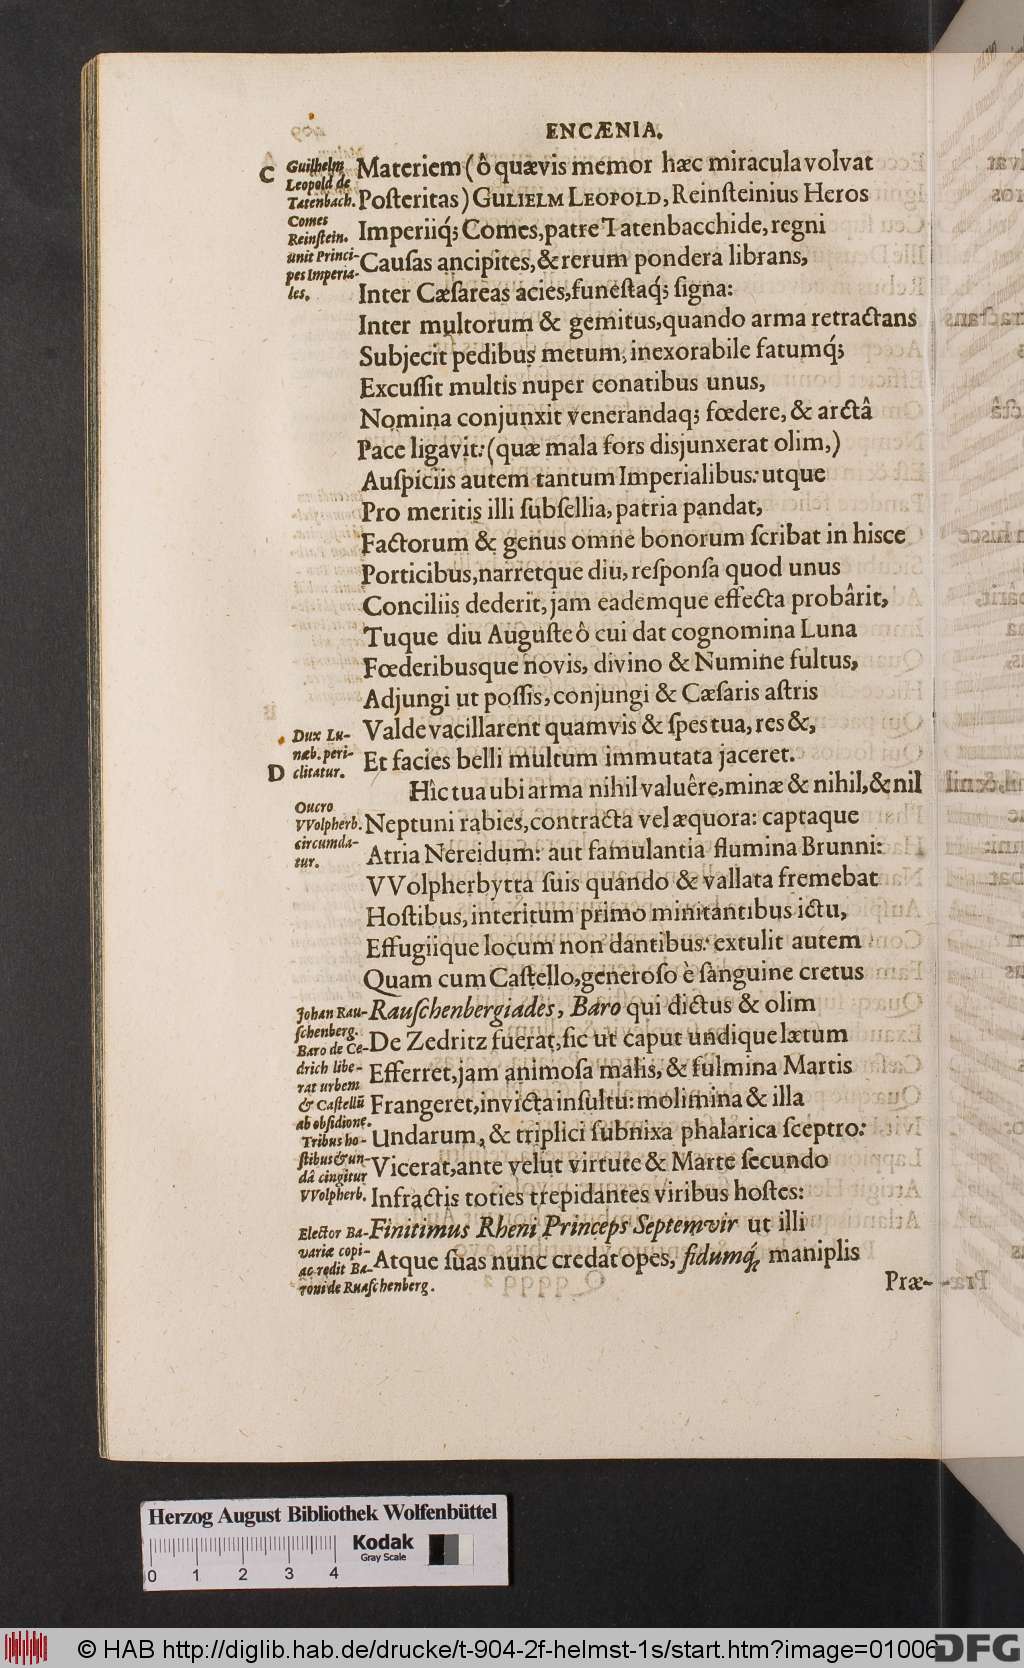 ENCÆNIA.
C
Guilhelm
Leopold de
Tatenbach.
Comes
Reinſtein.
unit Princi-
pes Imperia-
les.
Materiem (ô quævis memor hæc miracula volvat
Poſteritas) GULIELM LEOPOLD, Reinſteinius Heros
Imperiiq́; Comes, patre Tatenbacchide, regni
Cauſas ancipites, & rerum pondera librans,
Inter Cæſareas acies, funeſtaq́; ſigna:
Inter multorum & gemitus, quando arma retractans
Subjecit pedibus metum, inexorabile fatumq́;
Excuſſit multis nuper conatibus unus,
Nomina conjunxit venerandaq; fœdere, & arctâ
Pace ligavit: (quæ mala fors disjunxerat olim,)
Auſpiciis autem tantum Imperialibus: utque
Pro meritis illi ſubſellia, patria pandat,
Factorum & genus omne bonorum ſcribat in hisce
Porticibus, narretque diu, reſponſa quod unus
Conciliis dederit, jam eademque effecta probârit,
Tuque diu Auguſte ô cui dat cognomina Luna
Fœderibusque novis, divino & Numine fultus,
Adjungi ut poſſis, conjungi & Cæſaris aſtris
Valde vacillarent quamvis & ſpes tua, res &,
Et facies belli multum immutata jaceret.
Dux Lu-
næb. peri-
clitatur.
D
Hîc tua ubi arma nihil valuêre, minæ & nihil, & nil
Oucro
VVolpherb.
circumda-
tur.
Neptuni rabies, contracta vel æquora: captaque
Atria Nereidum: aut famulantia flumina Brunni:
VVolpherbytta ſuis quando & vallata fremebat
Hoſtibus, interitum primo minitantibus ictu,
Effugiique locum non dantibus: extulit autem
Quam cum Caſtello, generoſo è ſanguine cretus
Rauſchenbergiades, Baro qui dictus & olim
De Zedritz fuerat, ſic ut caput undique lætum
Efferret, jam animoſa malis, & fulmina Martis
Frangeret, invicta inſultu: molimina & illa
Undarum, & triplici ſubnixa phalarica ſceptro:
Vicerat, ante velut virtute & Marte ſecundo
Infractis toties trepidantes viribus hoſtes:
Finitimus Rheni Princeps Septemvir ut illi
Atque ſuas nunc credat opes, fidumq́; maniplis
Johan Rau-
ſchenberg.
Baro de Ce-
drich libe-
rat urbem
& Caſtellũ
ab obſidione.
Tribus ho-
ſtibus & un-
dâ cingitur
VVolpherb.
Elector Ba-
variæ copi-
as credit Ba-
roni de Ruaſchenberg.
Præ-
Herzog August Bibliothek Wolfenbüttel
Kodak
Gray Scale
0 1 2 3 4
© HAB http://diglib.hab.de/drucke/t-904-2f-helmst-1s/start.htm?image=01006
DFG